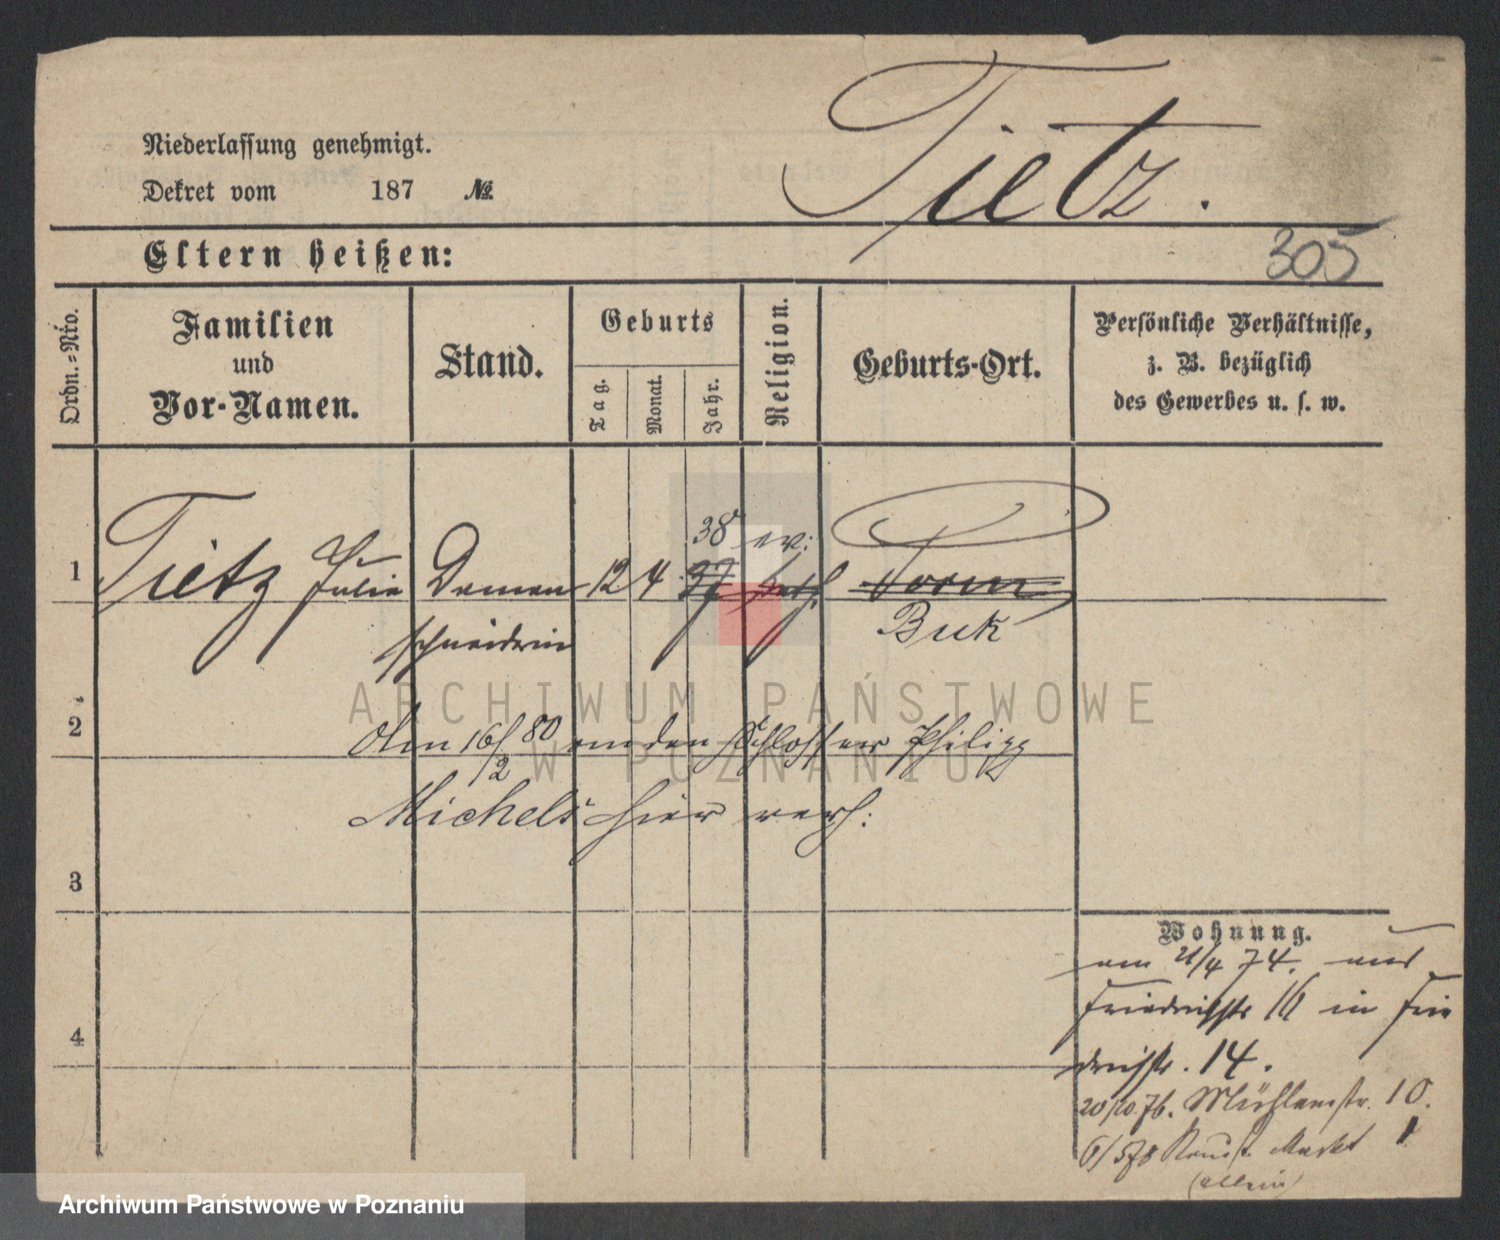 Tietz.
Niederlassung genehmigt.
Dekret vom 187 №.
Eltern heißen:
305
Ordn.=Nro.
Familien
und
Vor-Namen.
Stand.
Geburts
Tag.
Monat.
Jahr.
Religion.
Geburts-Ort.
Persönliche Verhältnisse,
z. B. bezüglich
des Gewerbes u. s. w.
38 ev:
1 Tietz Julie Damen 12 4 37 kath Posen
schneiderin Buk
ARCHIWUM PAŃSTWOWE
W POZNANIU
2 Am 16/2 80 an den Schlosser Philipp
Michels hier verh:
3
Wohnung.
am 21/4 74. aus
Friedrichstr 16 in Frie
4 drichstr. 14.
20/10 76. Mühlenstr. 10.
6/5 78 Neust. Markt 1
(allein)
Archiwum Państwowe w Poznaniu